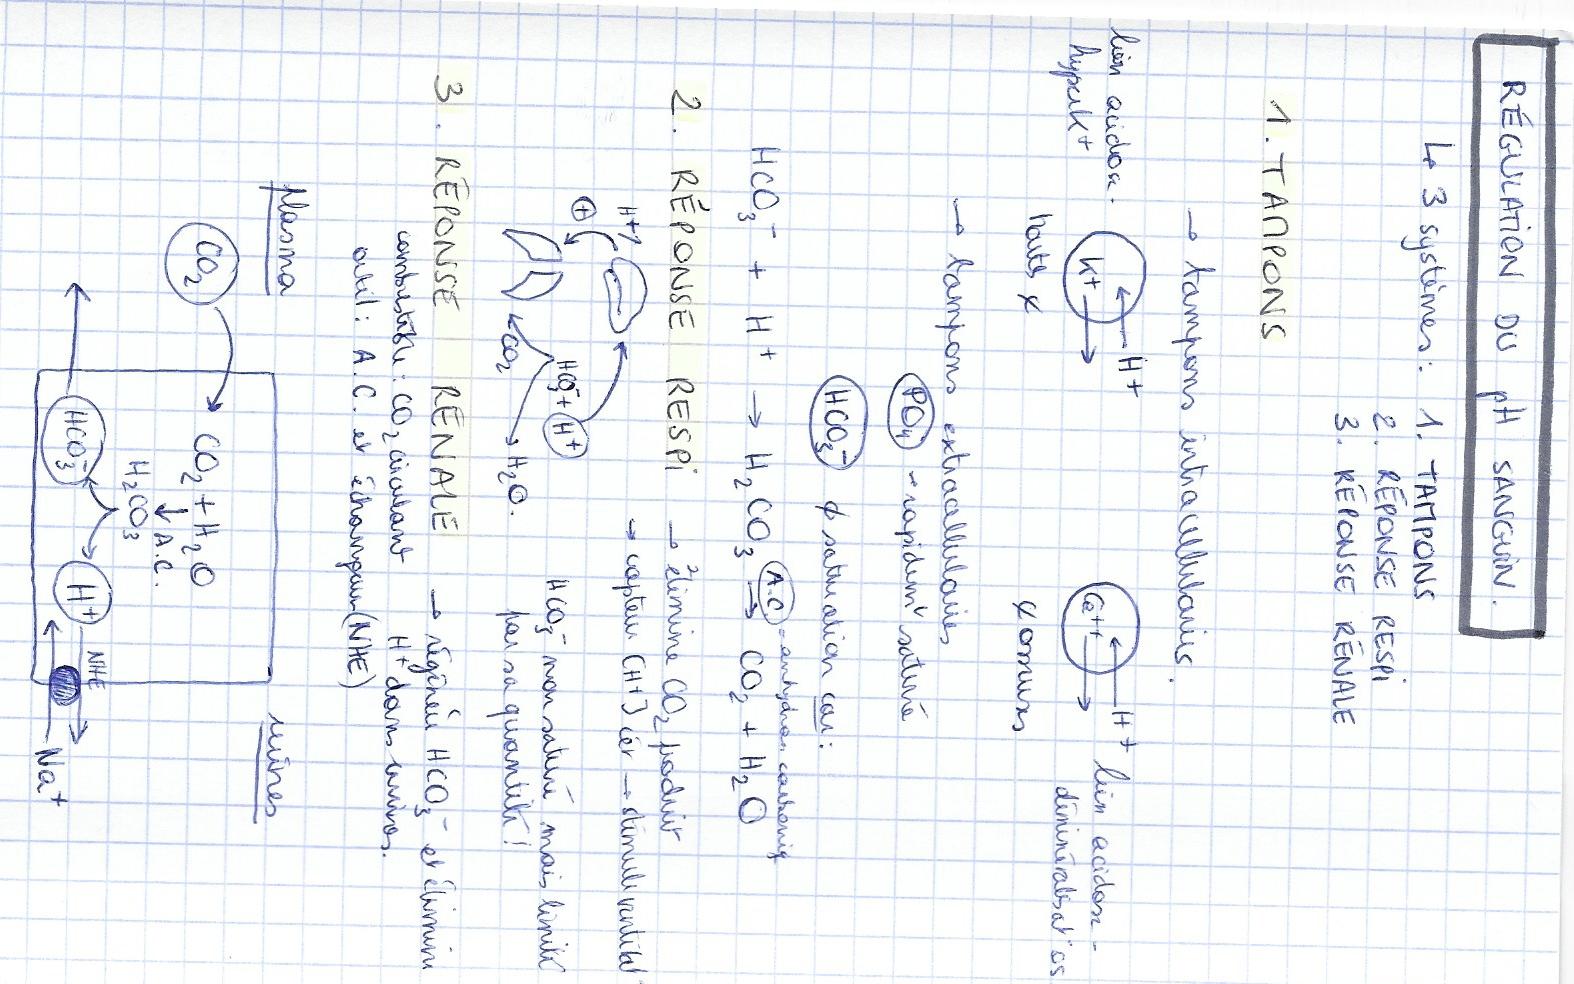 RÉGULATION DU pH SANGUIN.
↳ 3 systèmes: 1. TAMPONS
2. RÉPONSE RESPI
3. RÉPONSE RÉNALE
1. TAMPONS
→ tampons intracellulaires.
lien acidose - hyperK+
K+ H+
toutes ¢
Ca++ H+
¢ osseuses
lien acidose - déminéralisat° os
→ tampons extracellulaires
PO4 → rapidemt saturé
HCO3- ∅ saturation car:
HCO3- + H+ → H2CO3 A.C → CO2 + H2O
A.C = anhydras. carboniq
2. RÉPONSE RESPI → élimine CO2 produit
→ capteur [H+] cér → stimule ventilat°
H+↑
+
HCO3- + H+
CO2 H2O.
HCO3- non saturé mais limité
par sa quantité!
3. RÉPONSE RÉNALE → régénère HCO3- et élimine
H+ dans urines.
combustible: CO2 circulant
outil: A.C. et échangeur (NHE)
plasma urines
CO2 → CO2 + H2O
↓ A.C.
H2CO3
HCO3- H+ NHE
Na+